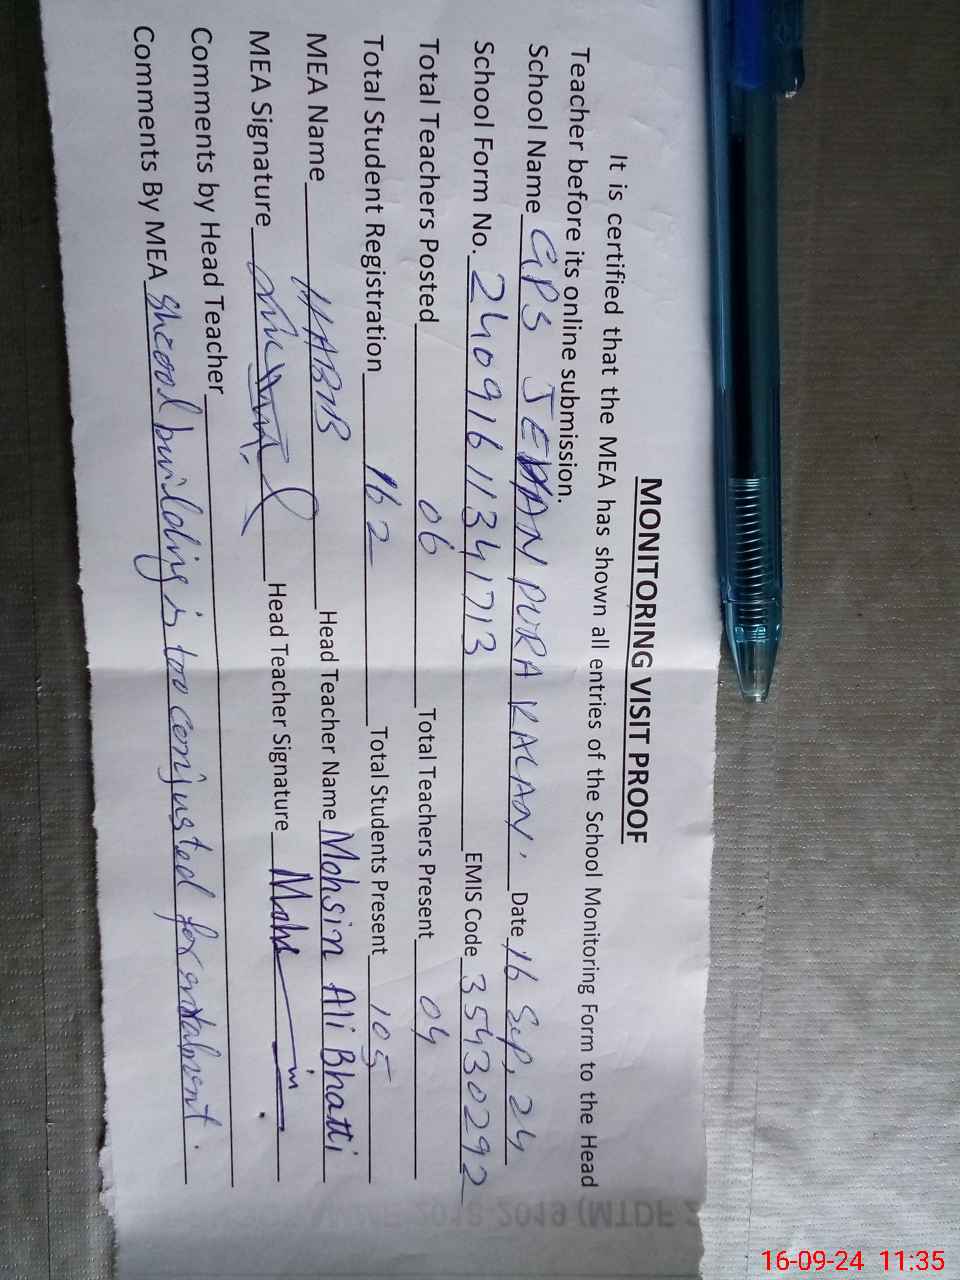 MONITORING VISIT PROOF
It is certified that the MEA has shown all entries of the School Monitoring Form to the Head
Teacher before its online submission.
School Name GPS JEHAN PURA KALAN. Date 16 Sep, 24
School Form No. 24091611341713 EMIS Code 35430292
Total Teachers Posted 06 Total Teachers Present 04
Total Student Registration 162 Total Students Present 105
MEA Name HABIB Head Teacher Name Mohsin Ali Bhatti
MEA Signature Head Teacher Signature
Comments by Head Teacher
Comments By MEA School building is too conjusted for
2018-2019 (MTDF
16-09-24 11:35